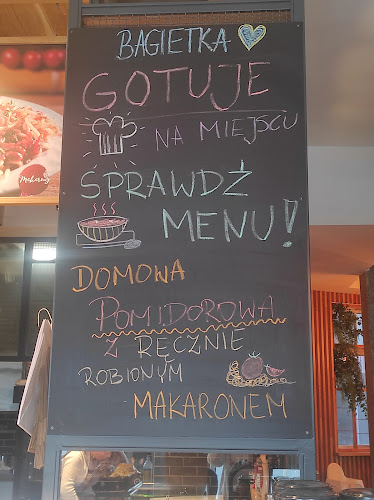 BAGIETKA
GOTUJE
NA MIEJSCU
SPRAWDŹ
MENU!
DOMOWA
POMIDOROWA
Z RĘCZNIE
ROBIONYM
MAKARONEM